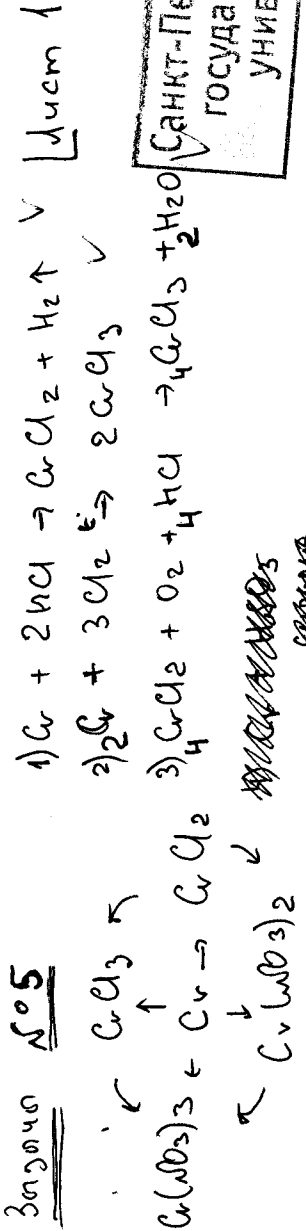 Задача №5
CrCl3
Cr(NO3)3 ← Cr → CrCl2
Cr(NO3)2
1) Cr + 2HCl → CrCl2 + H2↑ ✓
2) 2Cr + 3Cl2 t°→ 2CrCl3 ✓
3) 4CrCl2 + O2 + 4HCl → 4CrCl3 + 2H2O ✓
Лист 1
Санкт-Пе
госуда
унив